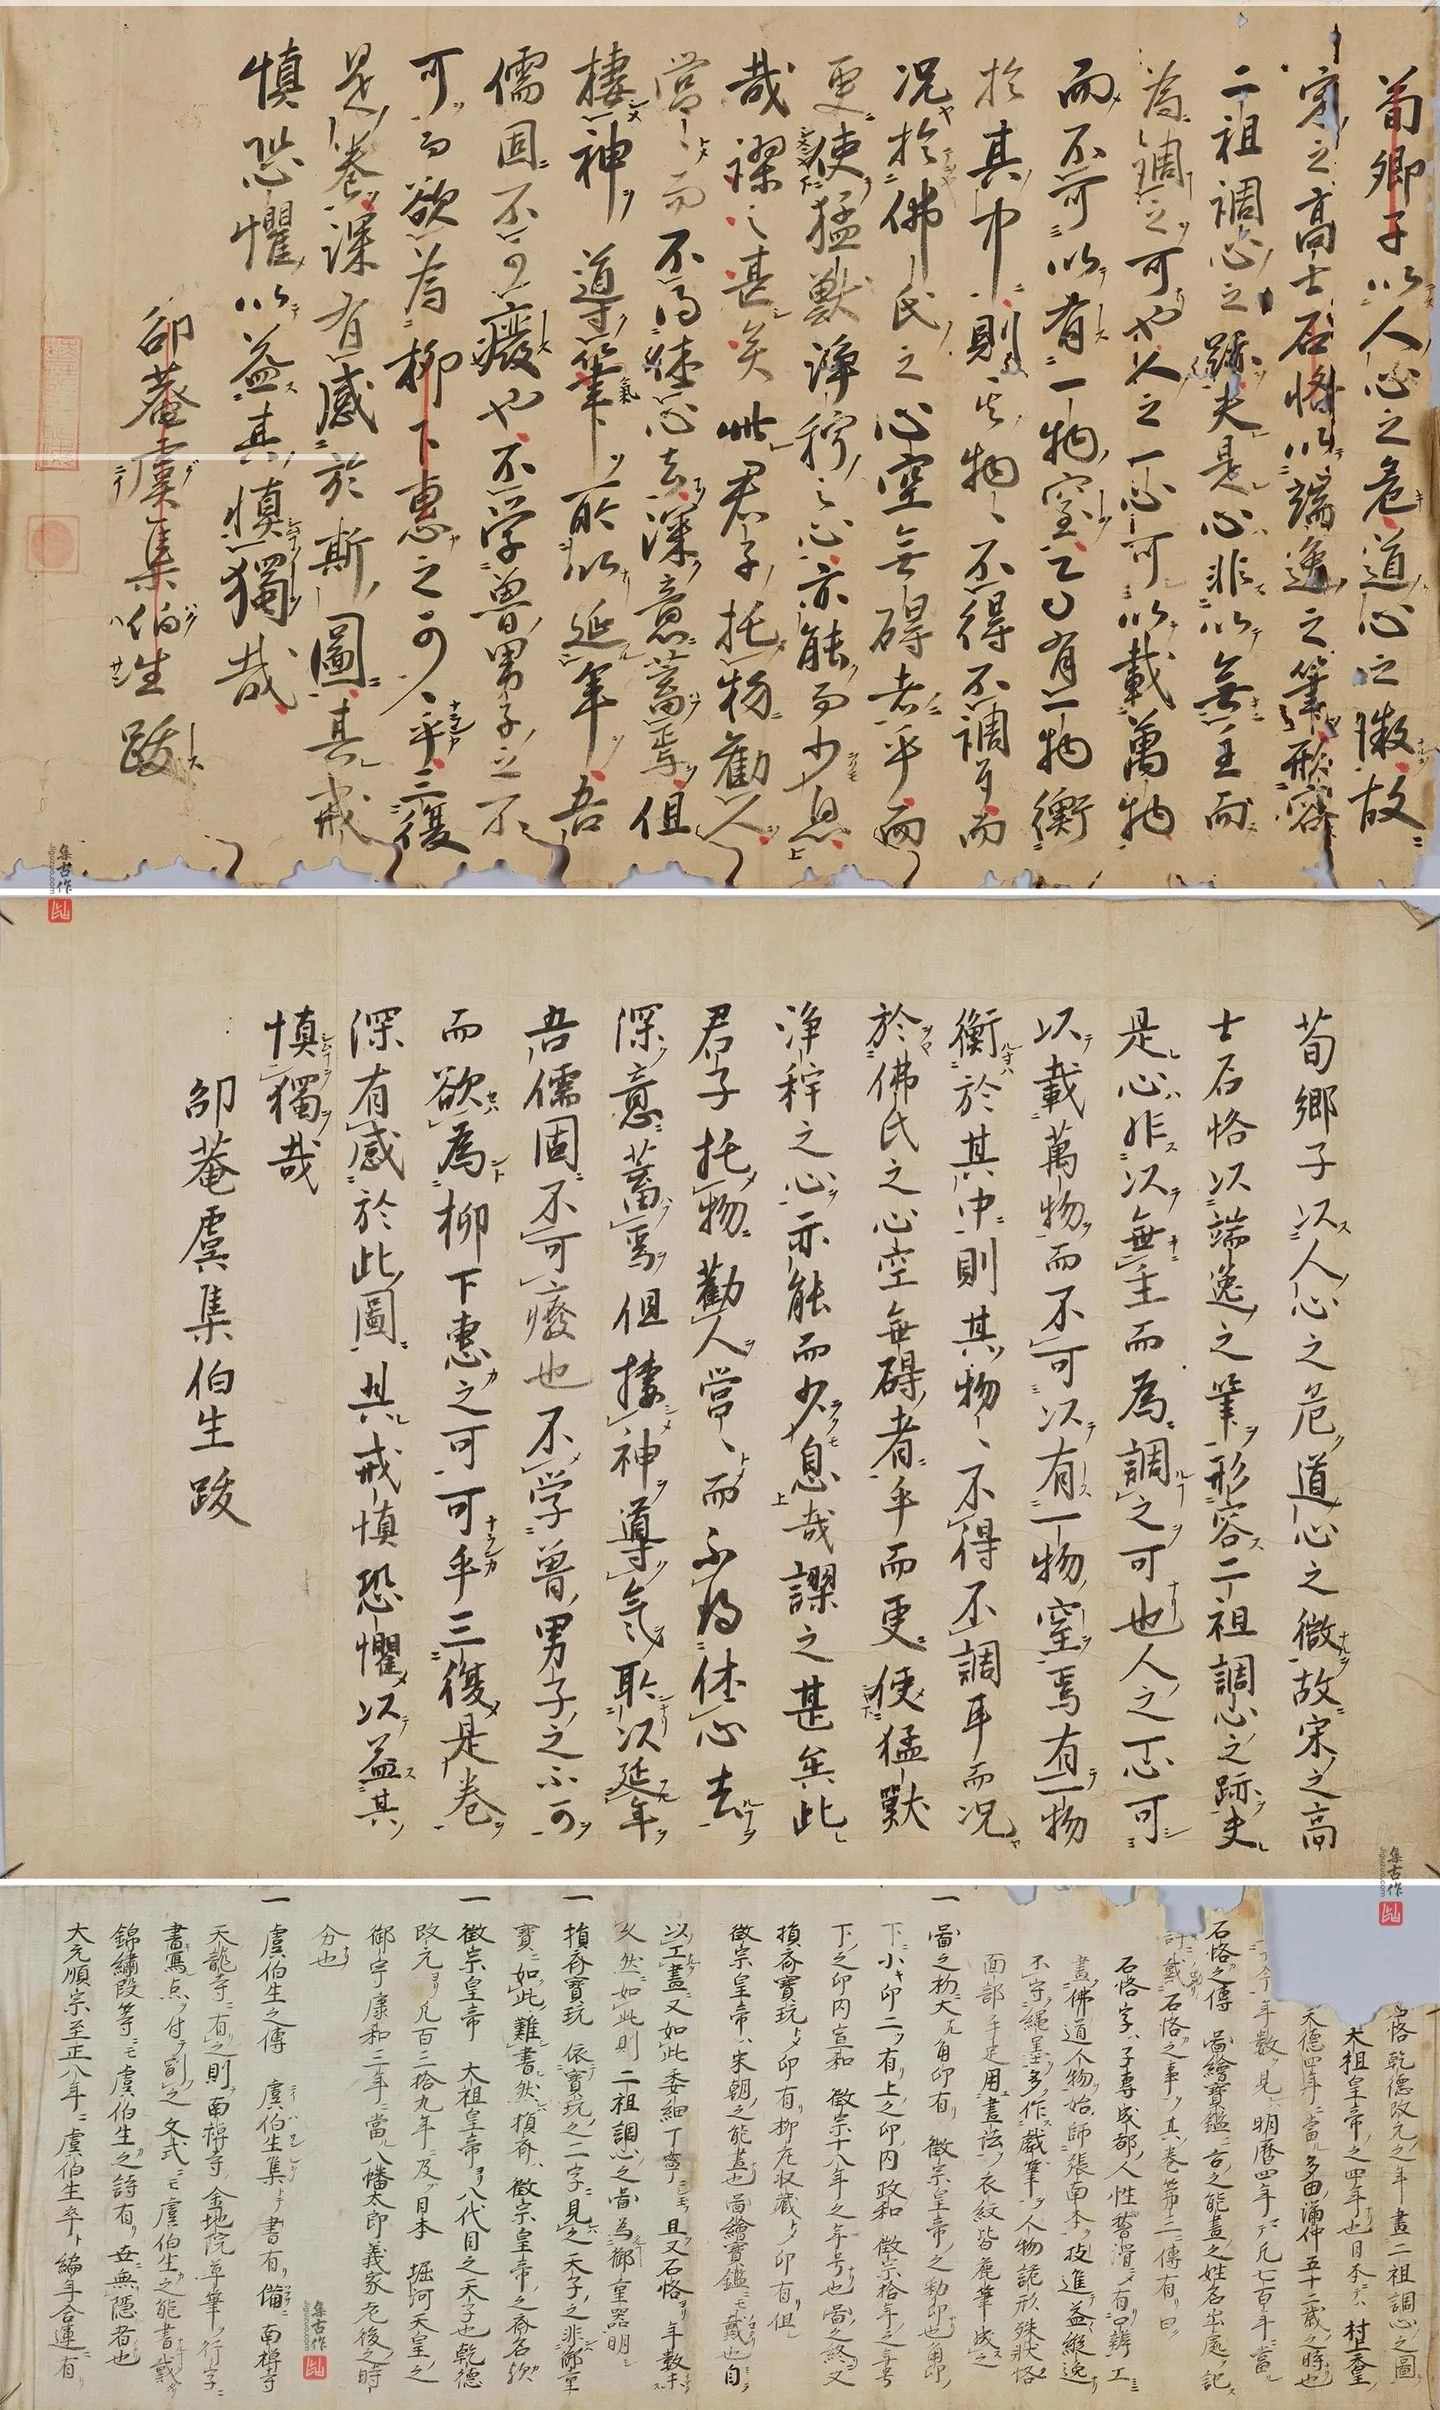 荀卿子以人心之危道心之微故
宋之高士石恪以端逸之筆形容
二祖調心之跡夫是心非以無主而
為調之可也人之一心可以載萬物
而不可以有一物窒之有一物衡
於其中則其物々不得不調耳而
况於佛氏之心空無礙者乎而
更使猛獸淨稱之心亦能而少息
哉謬之甚矣此君子托物勸人
當々而不得住心去深意蓄焉但
棲神導筆氣所以延年吾
儒固不可廢也不学魯男子之不
可而欲為柳下惠之可々乎三復
是卷深有感於斯圖其戒
慎恐懼以益其慎獨哉
邵菴虞集伯生跋
荀鄉子以人心之危道心之微故宋之高
士石恪以端逸之筆形容二祖調心之跡夫
是心非以無主而為調之可也人之一心可
以載萬物而不可以有一物窒焉有一物
衡於其中則其物々不得不調耳而况
於佛氏之心空無礙者乎而更使猛獸
淨稱之心亦能而少息哉謬之甚矣此
君子托物勸人當々而不得住心去
深意蓄焉但棲神導氣所以延年
吾儒固不可廢也不学魯男子之不可
而欲為柳下惠之可可乎三復是卷
深有感於此圖其戒慎恐懼以益其
慎獨哉
邵菴虞集伯生跋
恪乾德改元之年畫二祖調心之圖
太祖皇帝之四年也日本ニテハ村上天皇
天德四年ニ當ル多田満仲五十一歳之時也
年数ヲ見ニ明曆四年マテ凡七百年ニ當ル
石恪之傳 圖繪寶鑑ニ言之能畫之姓名出處ヲ記
計載石恪之事ヲ其巻第三ニ傳有リ曰ク
石恪字ハ子專成都ノ人性滑稽有口辨工
畫佛道人物始師張南本ヲ技進益縱逸
不守繩墨多作戯筆ヲ人物詭形殊状恪
面部手足用畫法ヲ衣紋皆麁筆成之
一 圖之初大キ角印有リ徽宗皇帝ノ之勅印也角印ノ
下ニ小キ印二ツ有リ上之印ノ内政和 徽宗拾年之年号
下ノ之印内宣和 徽宗十八年之年号也圖之終ニ又
損斉寶玩ト印有柳左収藏ト印有リ但
徽宗皇帝ハ宋朝之能畫也圖繪寶鑑ニモ載也自
以工畫又如此委細丁寧ニ且又石恪ヨリ年数
久然ニ如此則二祖調心之圖為御重器明
一 損斉寶玩 依寶玩之二字見之天子之非御重
寶ニ如此難書然ハ損斉ハ徽宗皇帝ノ之斉名欤
一 徽宗皇帝 大祖皇帝ヨリ八代目之天子也乾德
改元ヨリ凡百三拾九年ニ及フ日本 堀河天皇之
御宇康和三年ニ當ル八幡太郎義家老後之時
分也
一 虞伯生之傳 虞伯生集ト書有リ備 南禅寺
天龍寺ニ有之則南禅寺金地院草筆ヲ行字ニ
書寫点ヲ付ヲ劄之 文式ニモ虞伯生之能書載
錦繡段等ニモ虞伯生之詩有リ世ニ無隠者也
大元順宗至正八年ニ虞伯生卒ト編年合運ニ有リ
集古作
集古作
集古作